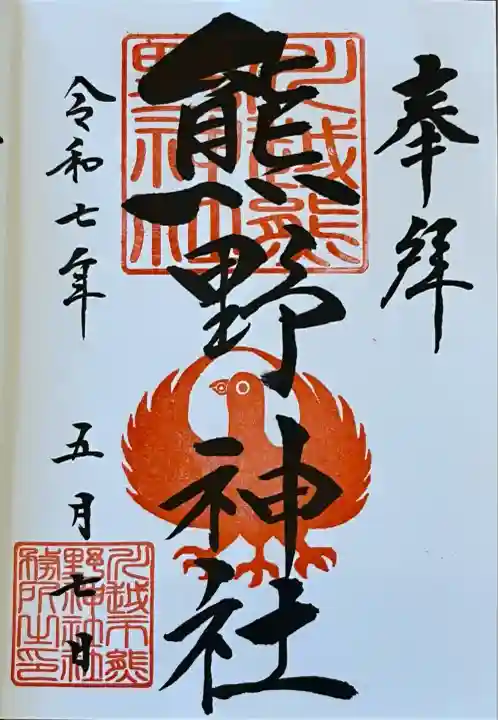 奉拝
熊野神社
川越熊
野神社
令和七年
五月七日
川越市熊
野神社社
務所之印